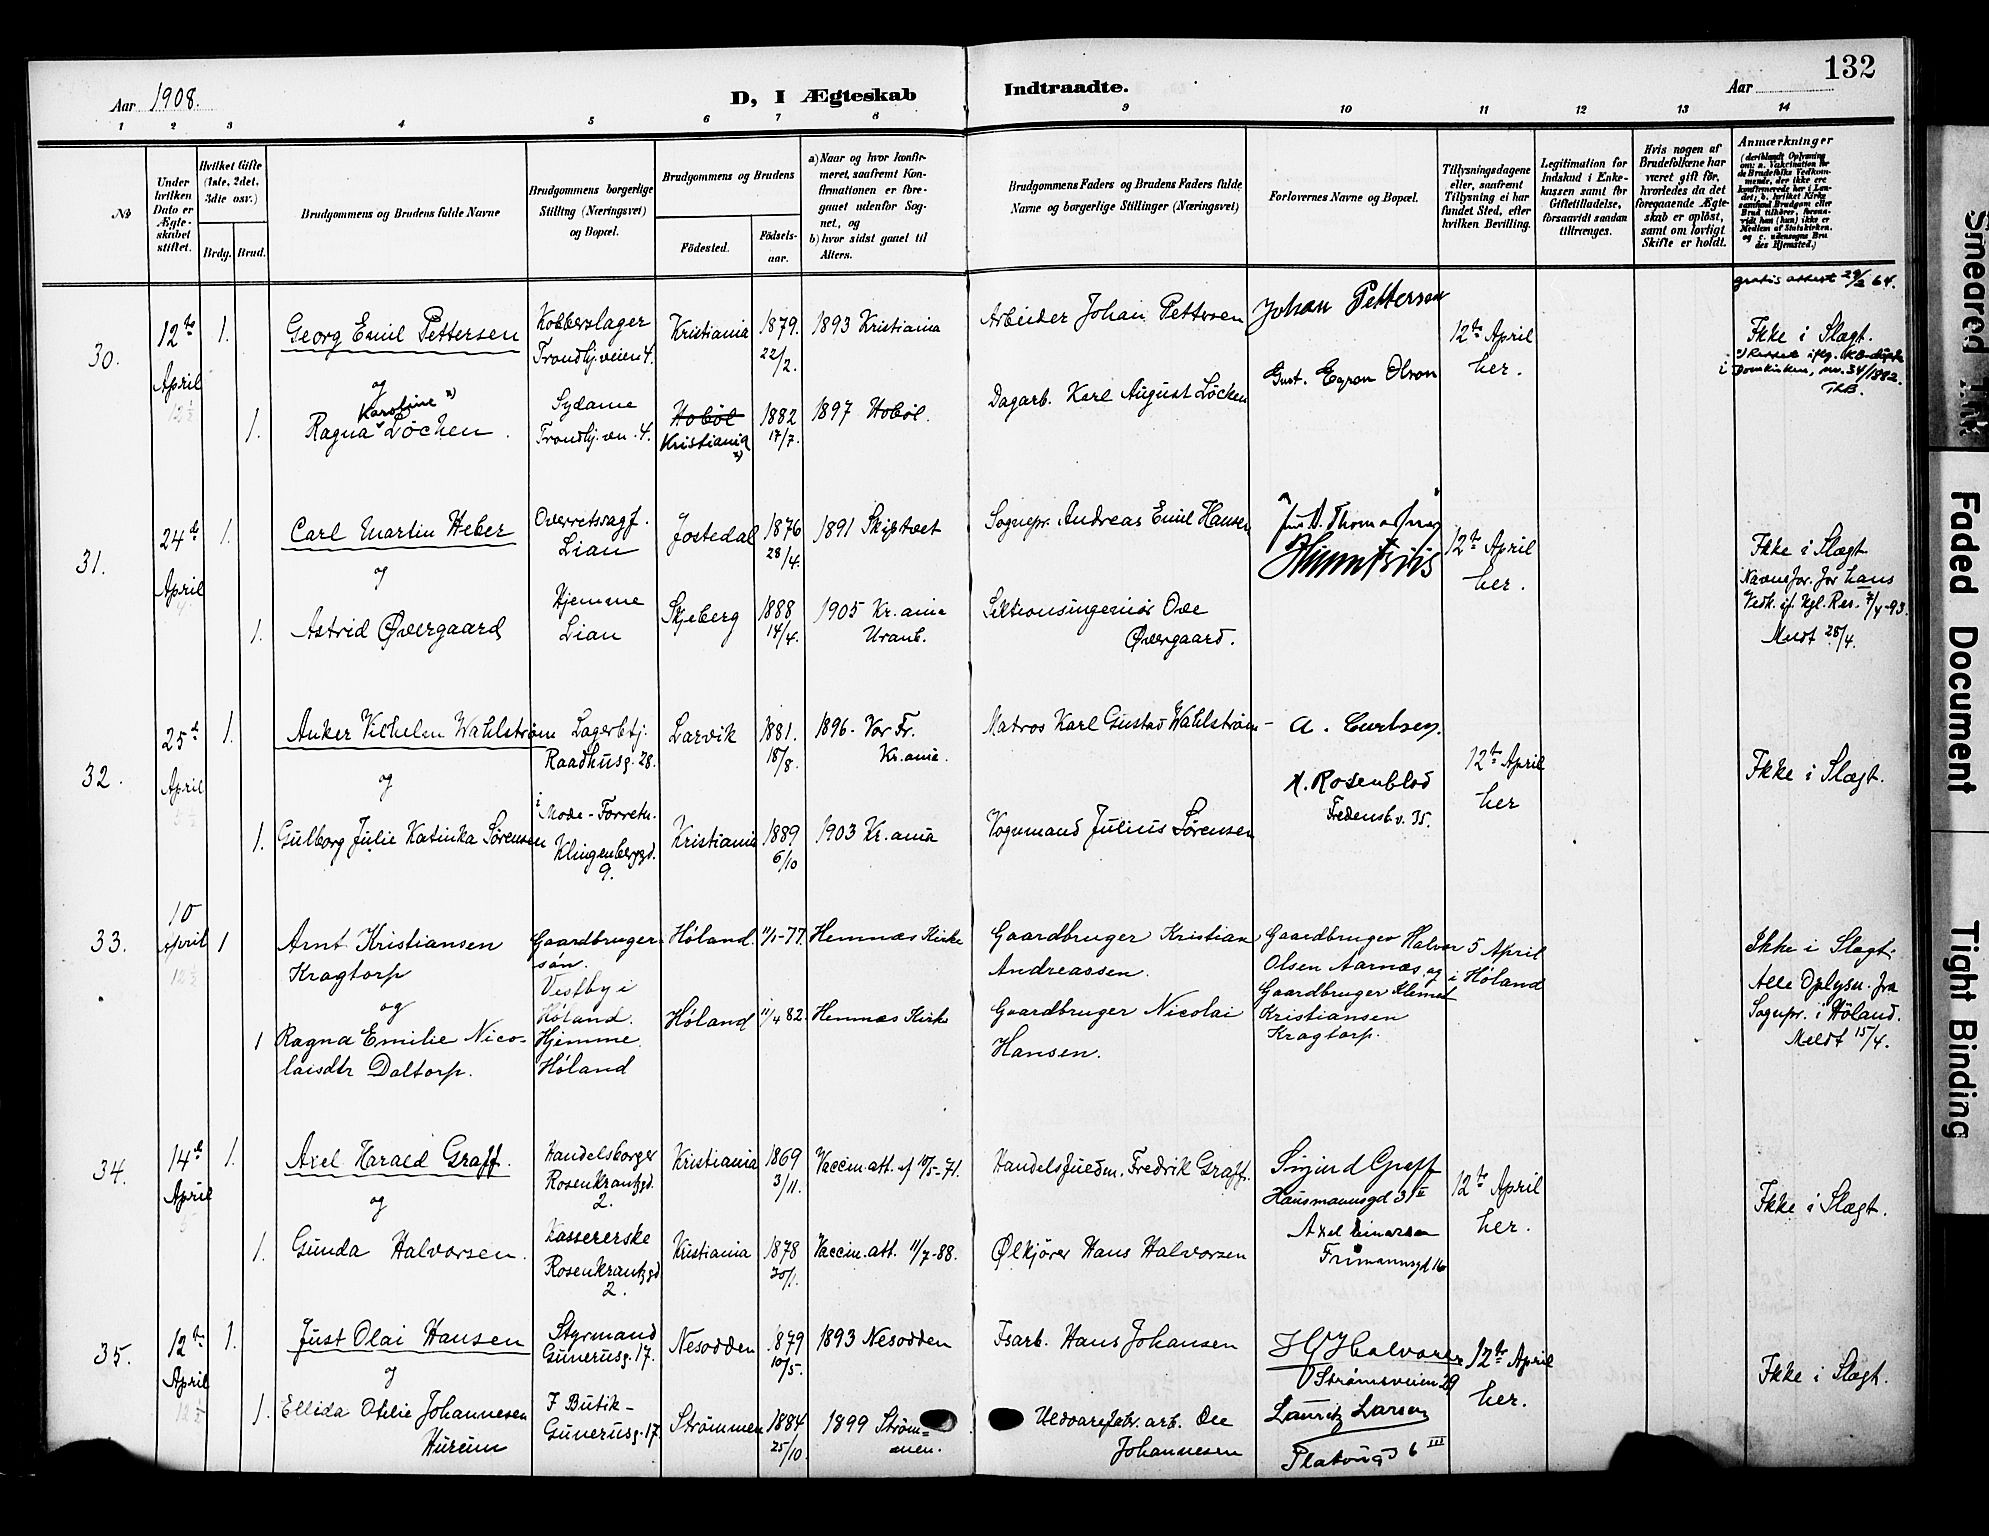 132
Aar 1908.
D, I Ægteskab
Indtraadte.
Aar
1 2 3 4 5 6 7 8 9 10 11 12 13 14
No
Under hvilken Dato er Ægteskabet stiftet.
Hvilket Gifte (1ste, 2det, 3die osv.)
Brdg. Brud.
Brudgommens og Brudens fulde Navne
Brudgommens borgerlige Stilling (Næringsvei) og Bopæl.
Brudgommens og Brudens
Fødested.
Fødselsaar.
a) Naar og hvor konfirmeret, saafremt Konfirmationen er foregaaet udenfor Sognet, og
b) hvor sidst gaaet til Alters.
Brudgommens Faders og Brudens Faders fulde Navne og borgerlige Stillinger (Næringsvei)
Forlovernes Navne og Bopæl.
Tillysningsdagene eller, saafremt Tillysning ei har fundet Sted, efter hvilken Bevilling.
Legitimation for Indskud i Enkekassen samt for Giftetilladelse, forsaavidt saadan tiltrænges.
Hvis nogen af Brudefolkene har været gift før, hvorledes da det foregaaende Ægteskab er opløst, samt om lovligt Skifte er holdt.
Anmærkninger
30.
12te April
1.
Georg Emil Pettersen
Kobberslager
Trondhj.veien 4.
Kristiania
1879.
22/2.
1893 Kristiania
Arbeider Johan Pettersen
Johan Pettersen
12te April
her.
gratis attest
64.
Ikke i Slægt.
og
1.
Karoline x)
Ragna Løchen.
Sydame
Trondhj.vn. 4.
Hobøl
Kristiania
x)
1882
17/7.
1897 Hobøl.
Dagarb. Karl August Løcken
Gust. Egron Olson
31.
24de April
1.
Carl Martin Heber
Overretssagf.
Lian
Jostedal
1876
28/4.
1891 Skiptvet
Sognepr. Andreas Emil Hansen
12te April
her.
Ikke i Slægt
Navnefor. for hans
Vedk. if. Kgl. Res.
Meldt 28/4.
og
1.
Astrid Øvergaard
Hjemme
Lian
Skjeberg
1888
14/4.
1905 Kr.ania
Uranb.
Sektionsingeniør Ove
Øvergaard.
32.
25de April
1.
Anker Vilhelm Wahlstrøm
Lagerbtj.
Raadhusg. 28.
Larvik
1881.
18/8.
1896. Vor Fr.
Kr.ania.
Matros Karl Gustav Wahlstrøm
A. Carlsen.
12te April
her
Ikke i Slægt.
og
1.
Gulborg Julie Katinka Sørensen
i Mode-Forretn.
Klingenberggd.
9.
Kristiania
1889
6/10
1903 Kr.ania
Vognmand Julius Sørensen
A. Rosenblad
Fredensb.v. 35.
33.
10 April
1
Arnt Kristiansen
Kragtorp
Gaardbruger-
søn.
Vestby i
Høland.
Høland.
11/1-77.
Hemnæs Kirke
Gaardbruger Kristian
Andreassen.
Gaardbruger Halvor
Olsen Aarnæs, og
Gaardbruger Klemet
Kristiansen
Kragtorp.
5 April
i Høland
Ikke i Slægt.
Alle Oplysn. fra
Sognpr. i Høland.
Meldt 15/4.
og
1
Ragna Emilie Nico-
laisdtr Daltorp.
Hjemme.
Høland
Høland
11/4 82.
Hemnæs Kirke
Gaardbruger Nicolai
Hansen.
34.
14de April
1.
Axel Harald Graff.
Handelsborger
Rosenkrantzgd.
2.
Kristiania
1869
3/11.
Vaccin.att. af 10/5-71.
Handelsfuldm. Fredrik Graff.
Sigurd Graff
Hausmannsgd 31 II
12te April
her.
Ikke i Slægt.
og
1.
Gunda Halvorsen.
Kassererske
Rosenkrantzgd
2.
Kristiania
1878
30/1.
Vaccin.att. 11/7-88.
Ølkjører Hans Halvorsen
Axel Einarsen
Frimannsgd 16
35.
12te April
1.
Just Olai Hansen
Styrmand
Gunerusg. 17.
Nesodden
1879
10/5.
1893 Nesodden
Isarb. Hans Johansen
H Halvorsen
Strømsveien 29
12te April
her.
Ikke i Slægt.
og
1.
Ellida Otelie Johannesen
Hureum
I Butik-
Gunerusg. 17.
Strømmen
1884
25/10
1899 Strøm-
men.
Uldvarefabr. arb. Ole
Johannesen
Lauritz Larsen
Platousg 6 III
Smeared Ink
Faded Document
Tight Binding